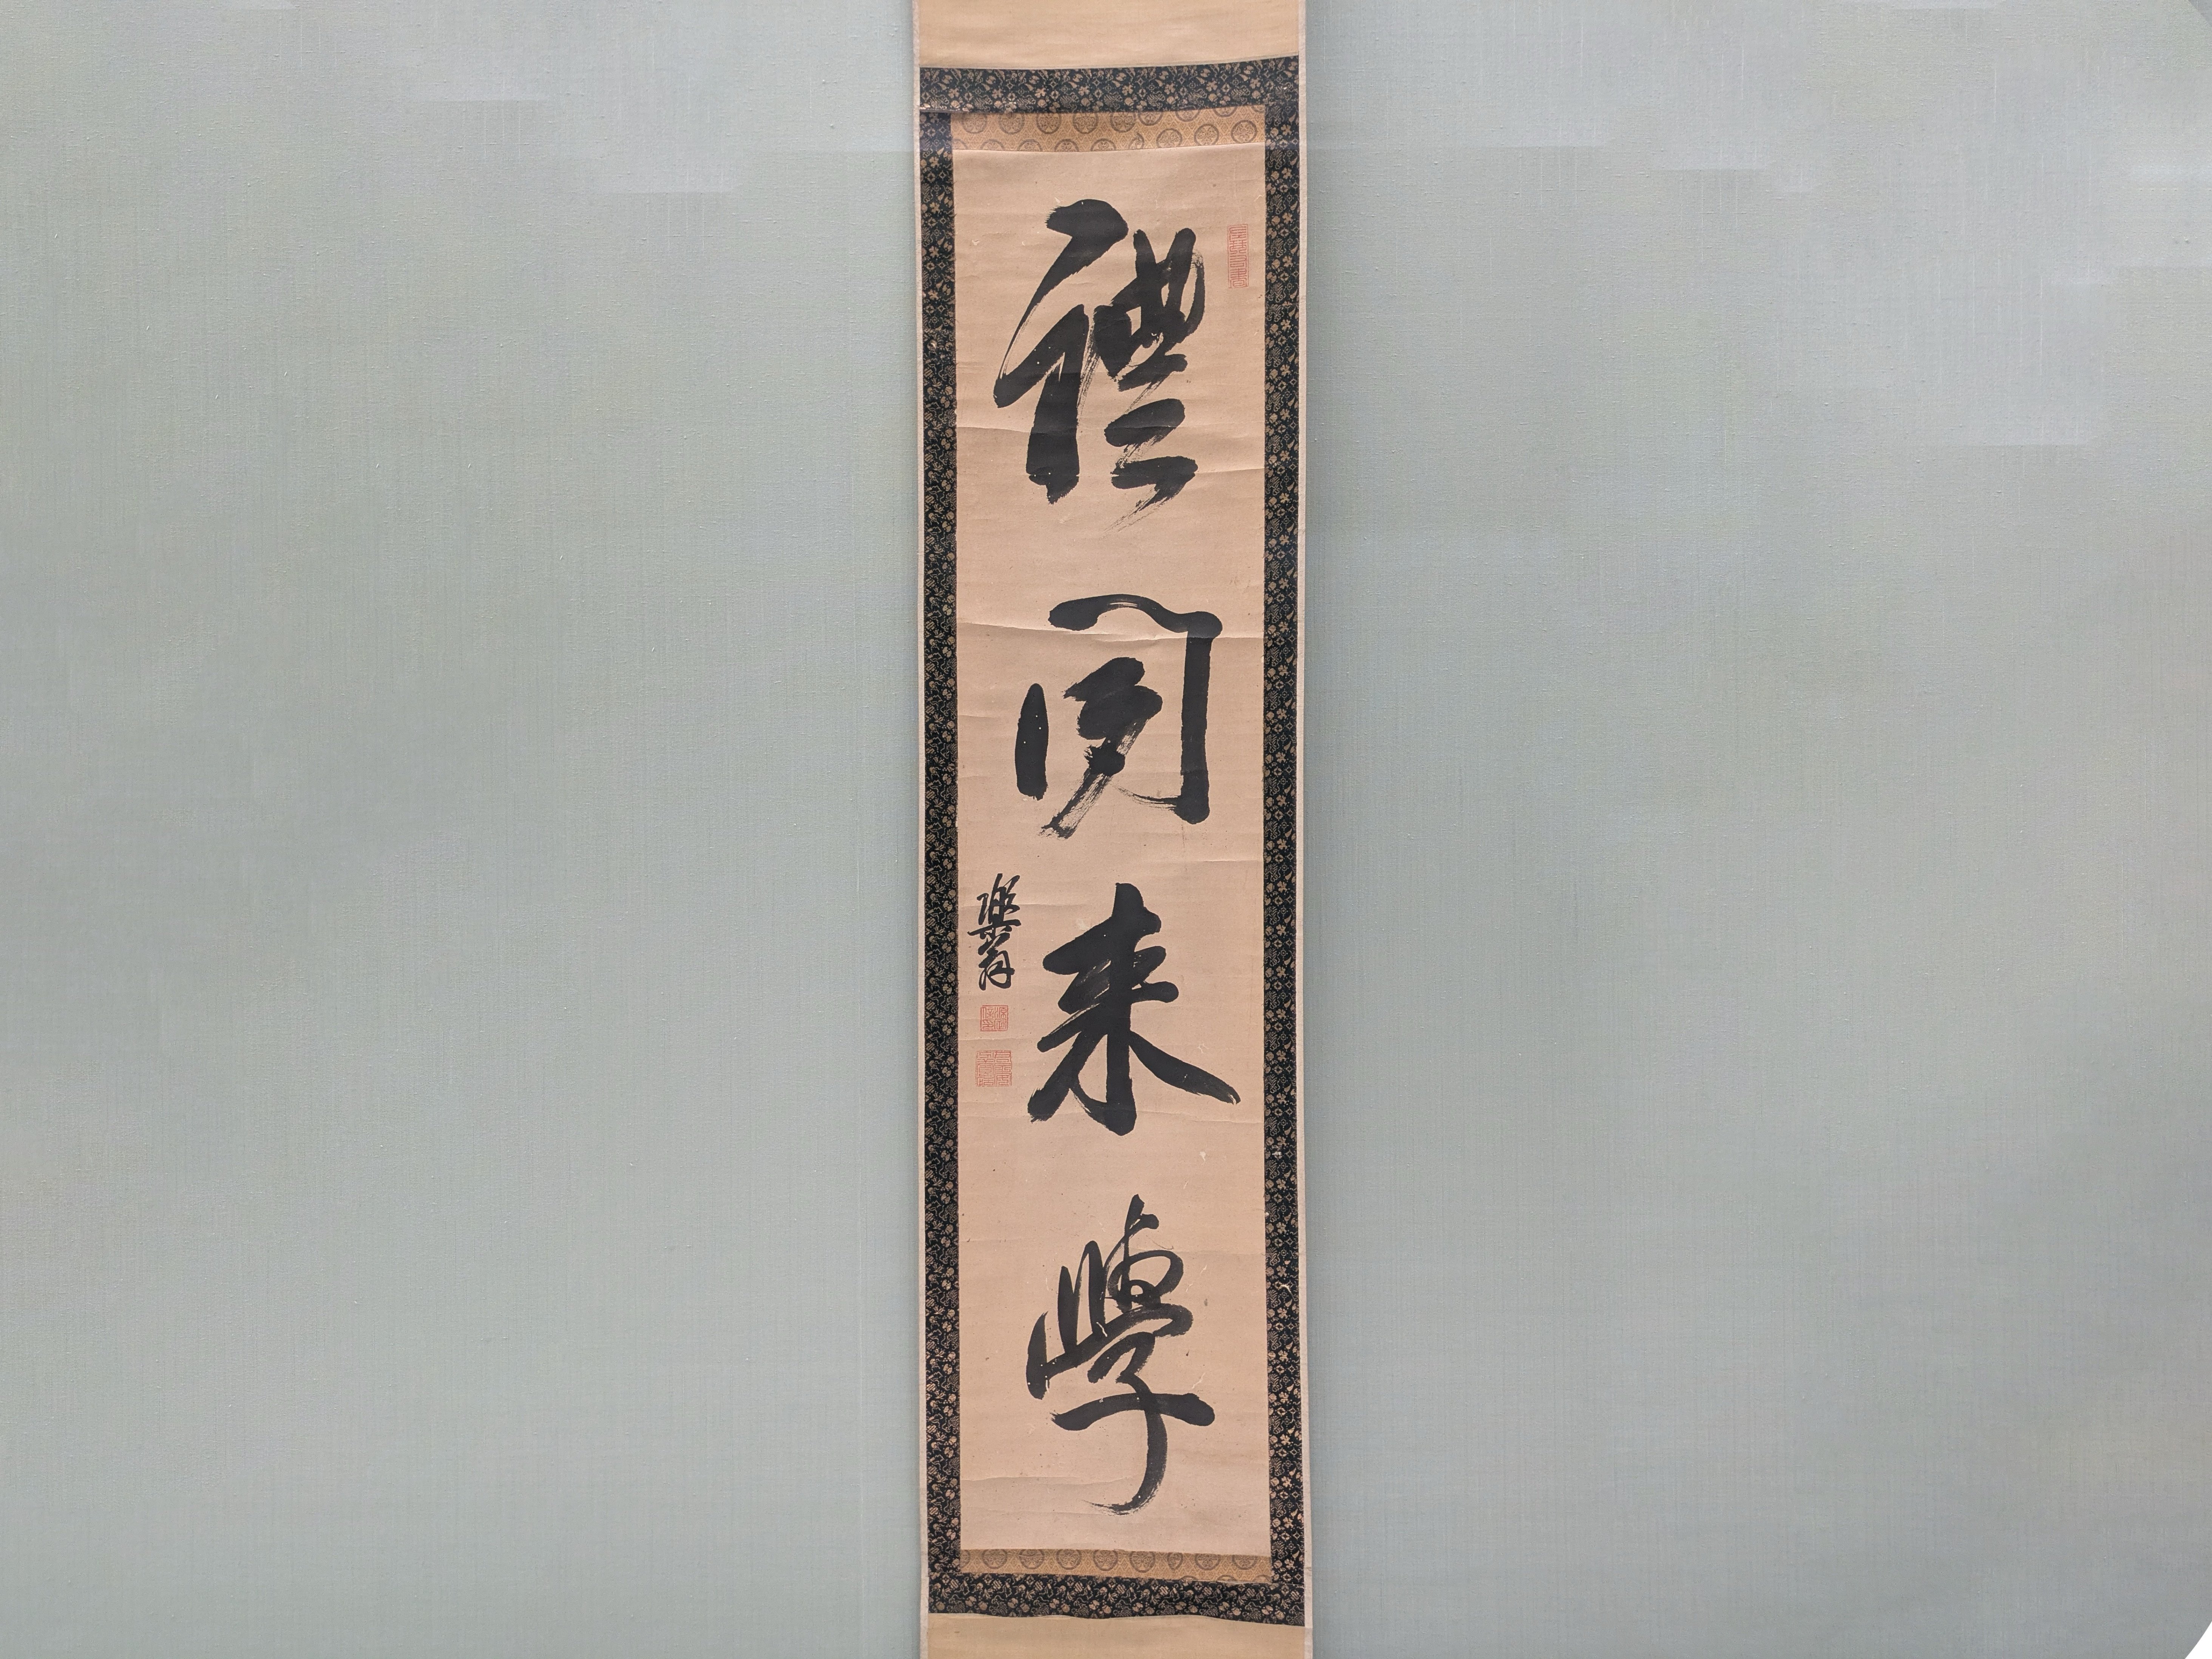 禮聞来學
樂翁